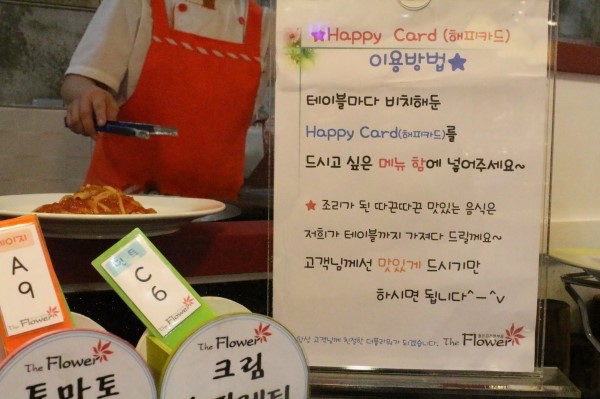 ★Happy Card (해피카드)
이용방법★
테이블마다 비치해둔
Happy Card(해피카드)를
드시고 싶은 메뉴 함에 넣어주세요~
★ 조리가 된 따끈따끈 맛있는 음식은
저희가 테이블까지 가져다 드릴께요~
고객님께선 맛있게 드시기만
하시면 됩니다^-^v
항상 고객님께 친절한 더플라워가 되겠습니다.
The Flower
A
9
The Flower
C
6
The Flower
The Flower
토마토
The Flower
크림